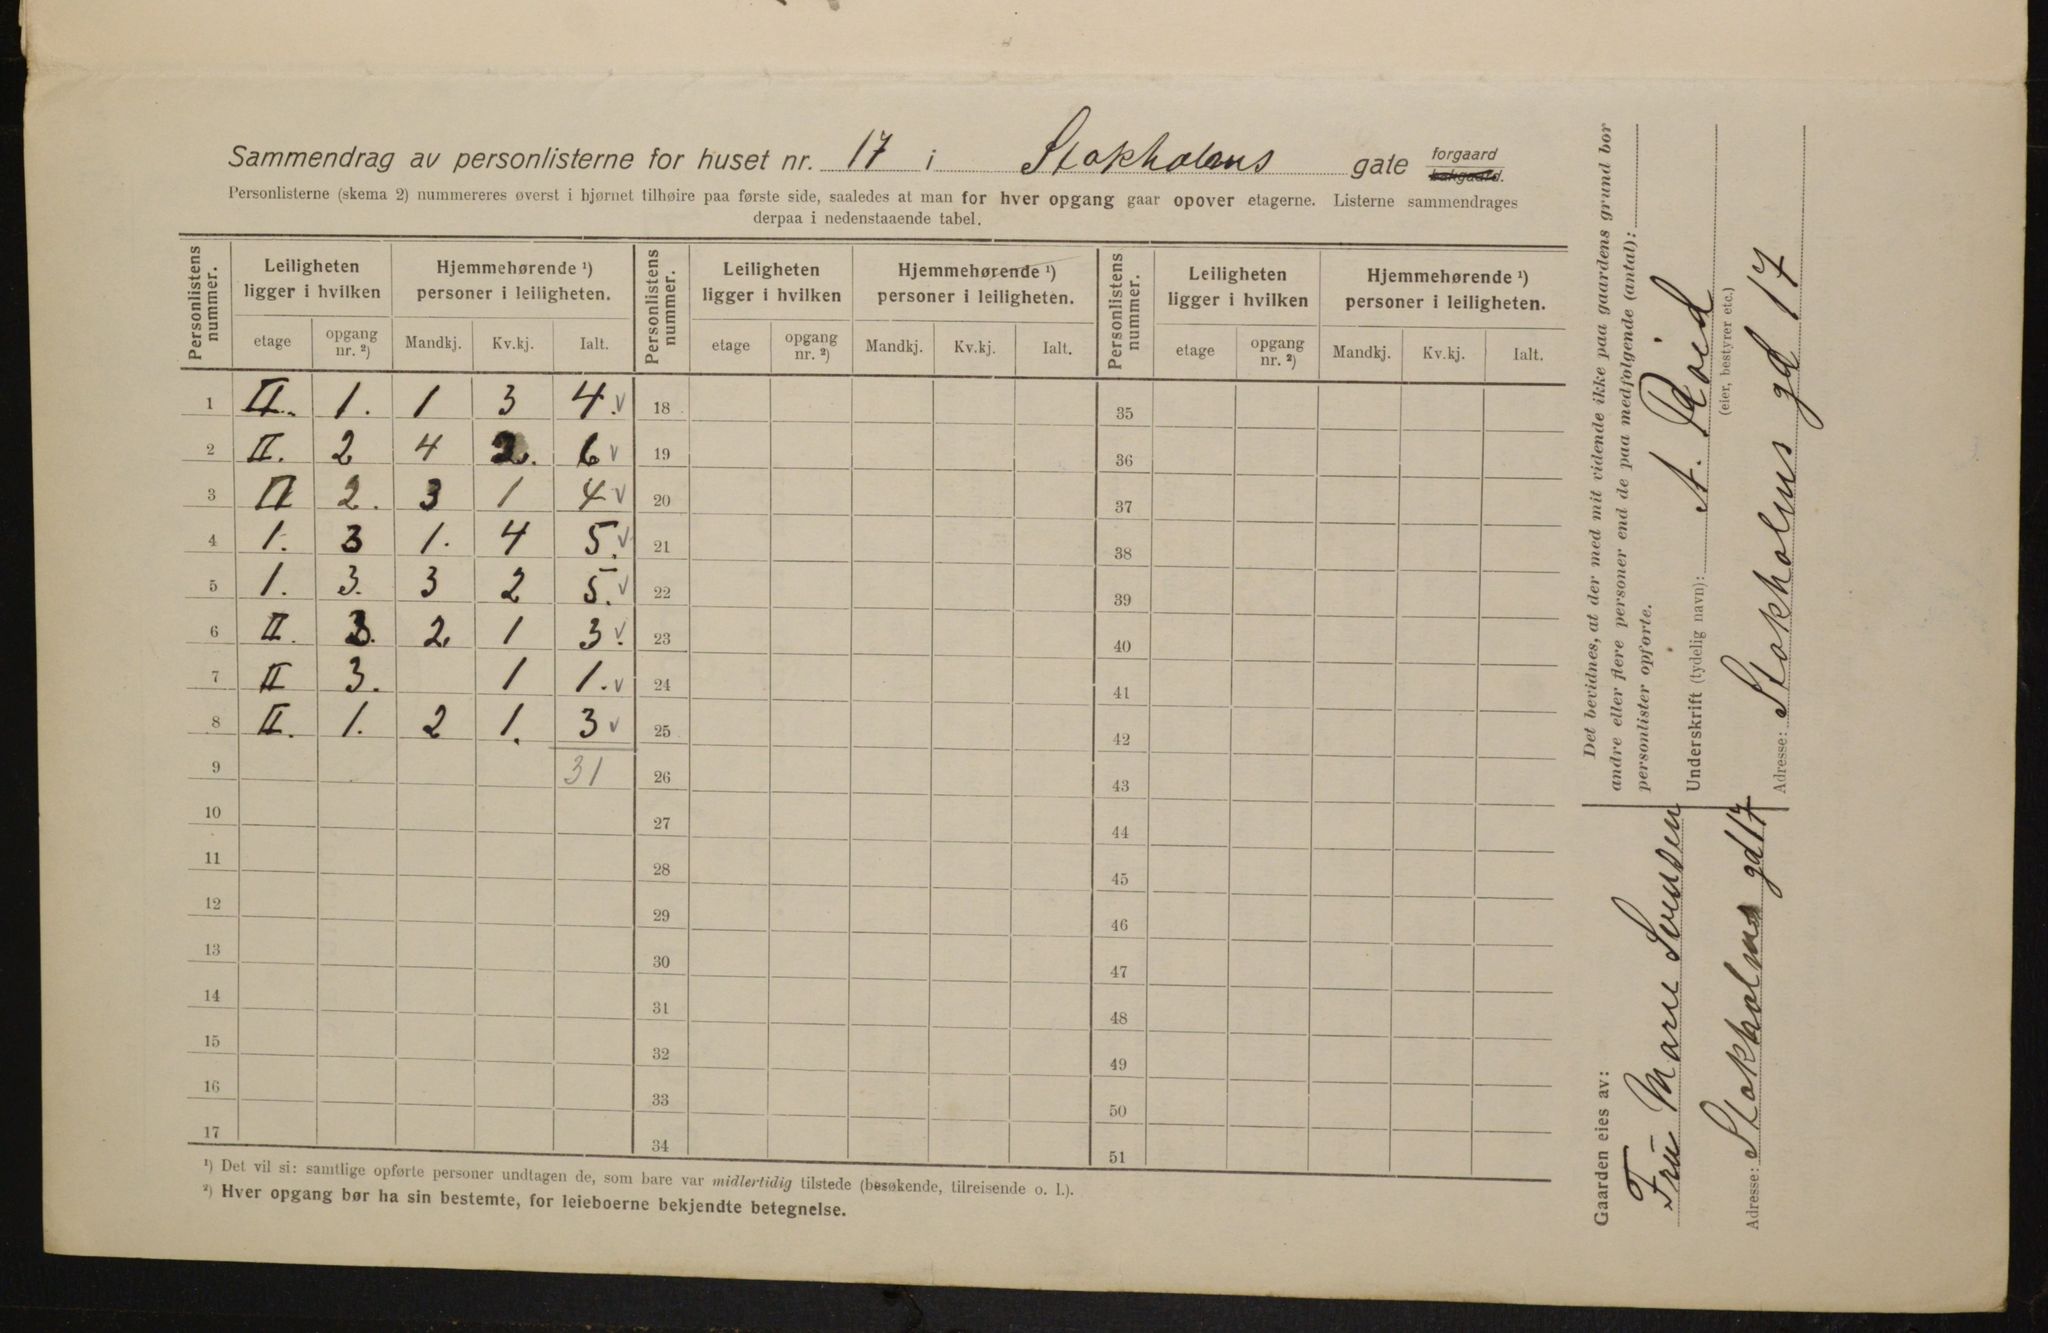 Sammendrag av personlisterne for huset nr. 17 i Stokholms gate forgaard bakgaard.
Personlisterne (skema 2) nummereres øverst i hjørnet tilhøire paa første side, saaledes at man for hver opgang gaar opover etagerne. Listerne sammendrages
derpaa i nedenstaaende tabel.
Personlistens nummer. Leiligheten ligger i hvilken Hjemmehørende ¹) personer i leiligheten. Personlistens nummer. Leiligheten ligger i hvilken Hjemmehørende ¹) personer i leiligheten. Personlistens nummer. Leiligheten ligger i hvilken Hjemmehørende ¹) personer i leiligheten.
etage opgang nr. ²) Mandkj. Kv.kj. Ialt. etage opgang nr. ²) Mandkj. Kv.kj. Ialt. etage opgang nr. ²) Mandkj. Kv.kj. Ialt.
1 II. 1. 1 3 4. v 18 35
2 II. 2 4 2. 6 v 19 36
3 II 2. 3 1 4 v 20 37
4 1. 3 1. 4 5. v 21 38
5 1. 3. 3 2 5. v 22 39
6 II. 3. 2. 1 3. v 23 40
7 II 3. 1 1. v 24 41
8 II. 1. 2 1. 3 v 25 42
9 31 26 43
10 27 44
11 28 45
12 29 46
13 30 47
14 31 48
15 32 49
16 33 50
17 34 51
¹) Det vil si: samtlige opførte personer undtagen de, som bare var midlertidig tilstede (besøkende, tilreisende o. l.).
²) Hver opgang bør ha sin bestemte, for leieboerne bekjendte betegnelse.
Det bevidnes, at der med mit vidende ikke paa gaardens grund bor
andre eller flere personer end de paa medfølgende (antal):
personlister opførte.
Underskrift (tydelig navn): A. Roid
(eier, bestyrer etc.)
Adresse: Stokholms gd 17
Gaarden eies av:
Fru Marie Svensen
Adresse: Stokholms gd 17